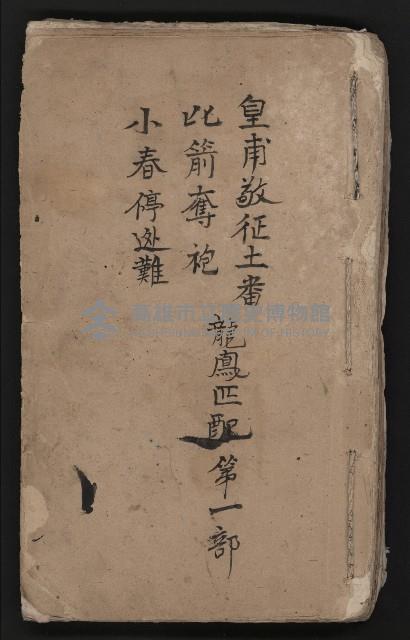 皇甫敬征土番
比箭奪袍
小春停迯難
龍鳳匹配 第一部
高雄市立歷史博物館
KAOHSIUNG MUSEUM OF HISTORY